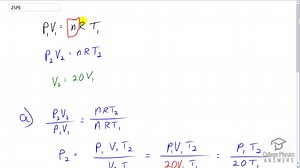 25PE
P₁V₁ = nRT₁
P₂V₂ = nRT₂
V₂ = 20V₁
a) P₂V₂/P₁V₁ = nRT₂/nRT₁
P₂ = P₁V₁T₂/V₂T₁ = P₁V₁T₂/20V₁T₁ = P₁T₂/20T₁
College Physics
ANSWERS